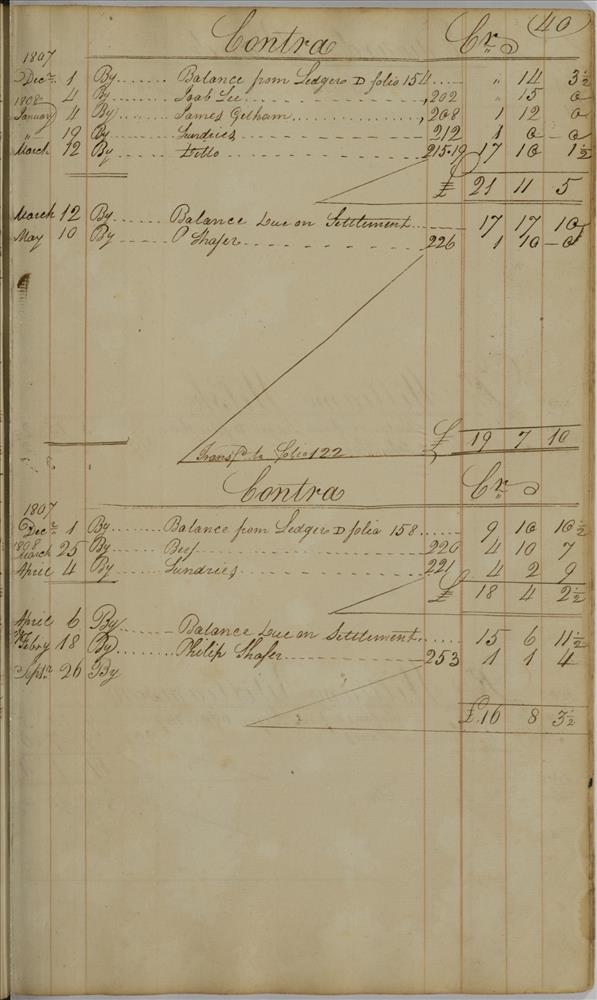 Contra Cr (40)
1807
Decr 1 By Balance from Ledger D folio 154 " 14 3½
1808 4 By Joab Lee ,202 " 15 0
January 4 By James Gelham ,208 1 12 0
" 19 By Sundries 212 1 0 0
March 12 By Ditto 215.19 17 10 1½
£ 21 11 5
March 12 By Balance Due on Settlement 17 17 10
May 10 By P Shafer 226 1 10 0
Transfd to folio 122 £ 19 7 10
Contra Cr
1807
Decr 1 By Balance from Ledger D folio 158 9 10 10½
1808
March 25 By Beef 220 4 10 7
April 4 By Sundries 221 4 2 9
£ 18 4 2½
April 6 By Balance Due on Settlement 15 6 11½
Febry 18 By Philip Shafer 253 1 1 4
Septr 26 By
£ 16 8 3½